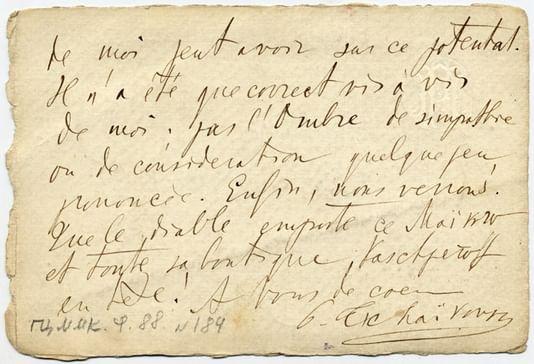 de moi peut avoir sur ce potentat.
Il n'a été que correct vis à vis
de moi. pas l'Ombre de simpathie
ou de considération quelque peu
prononcée. Enfin, nous verrons.
Que le diable emporte ce
et toute sa boutique,
en tête! A Vous de coeur
P. Tschaïkovsky
ГЦММК. Ф. 88. № 189